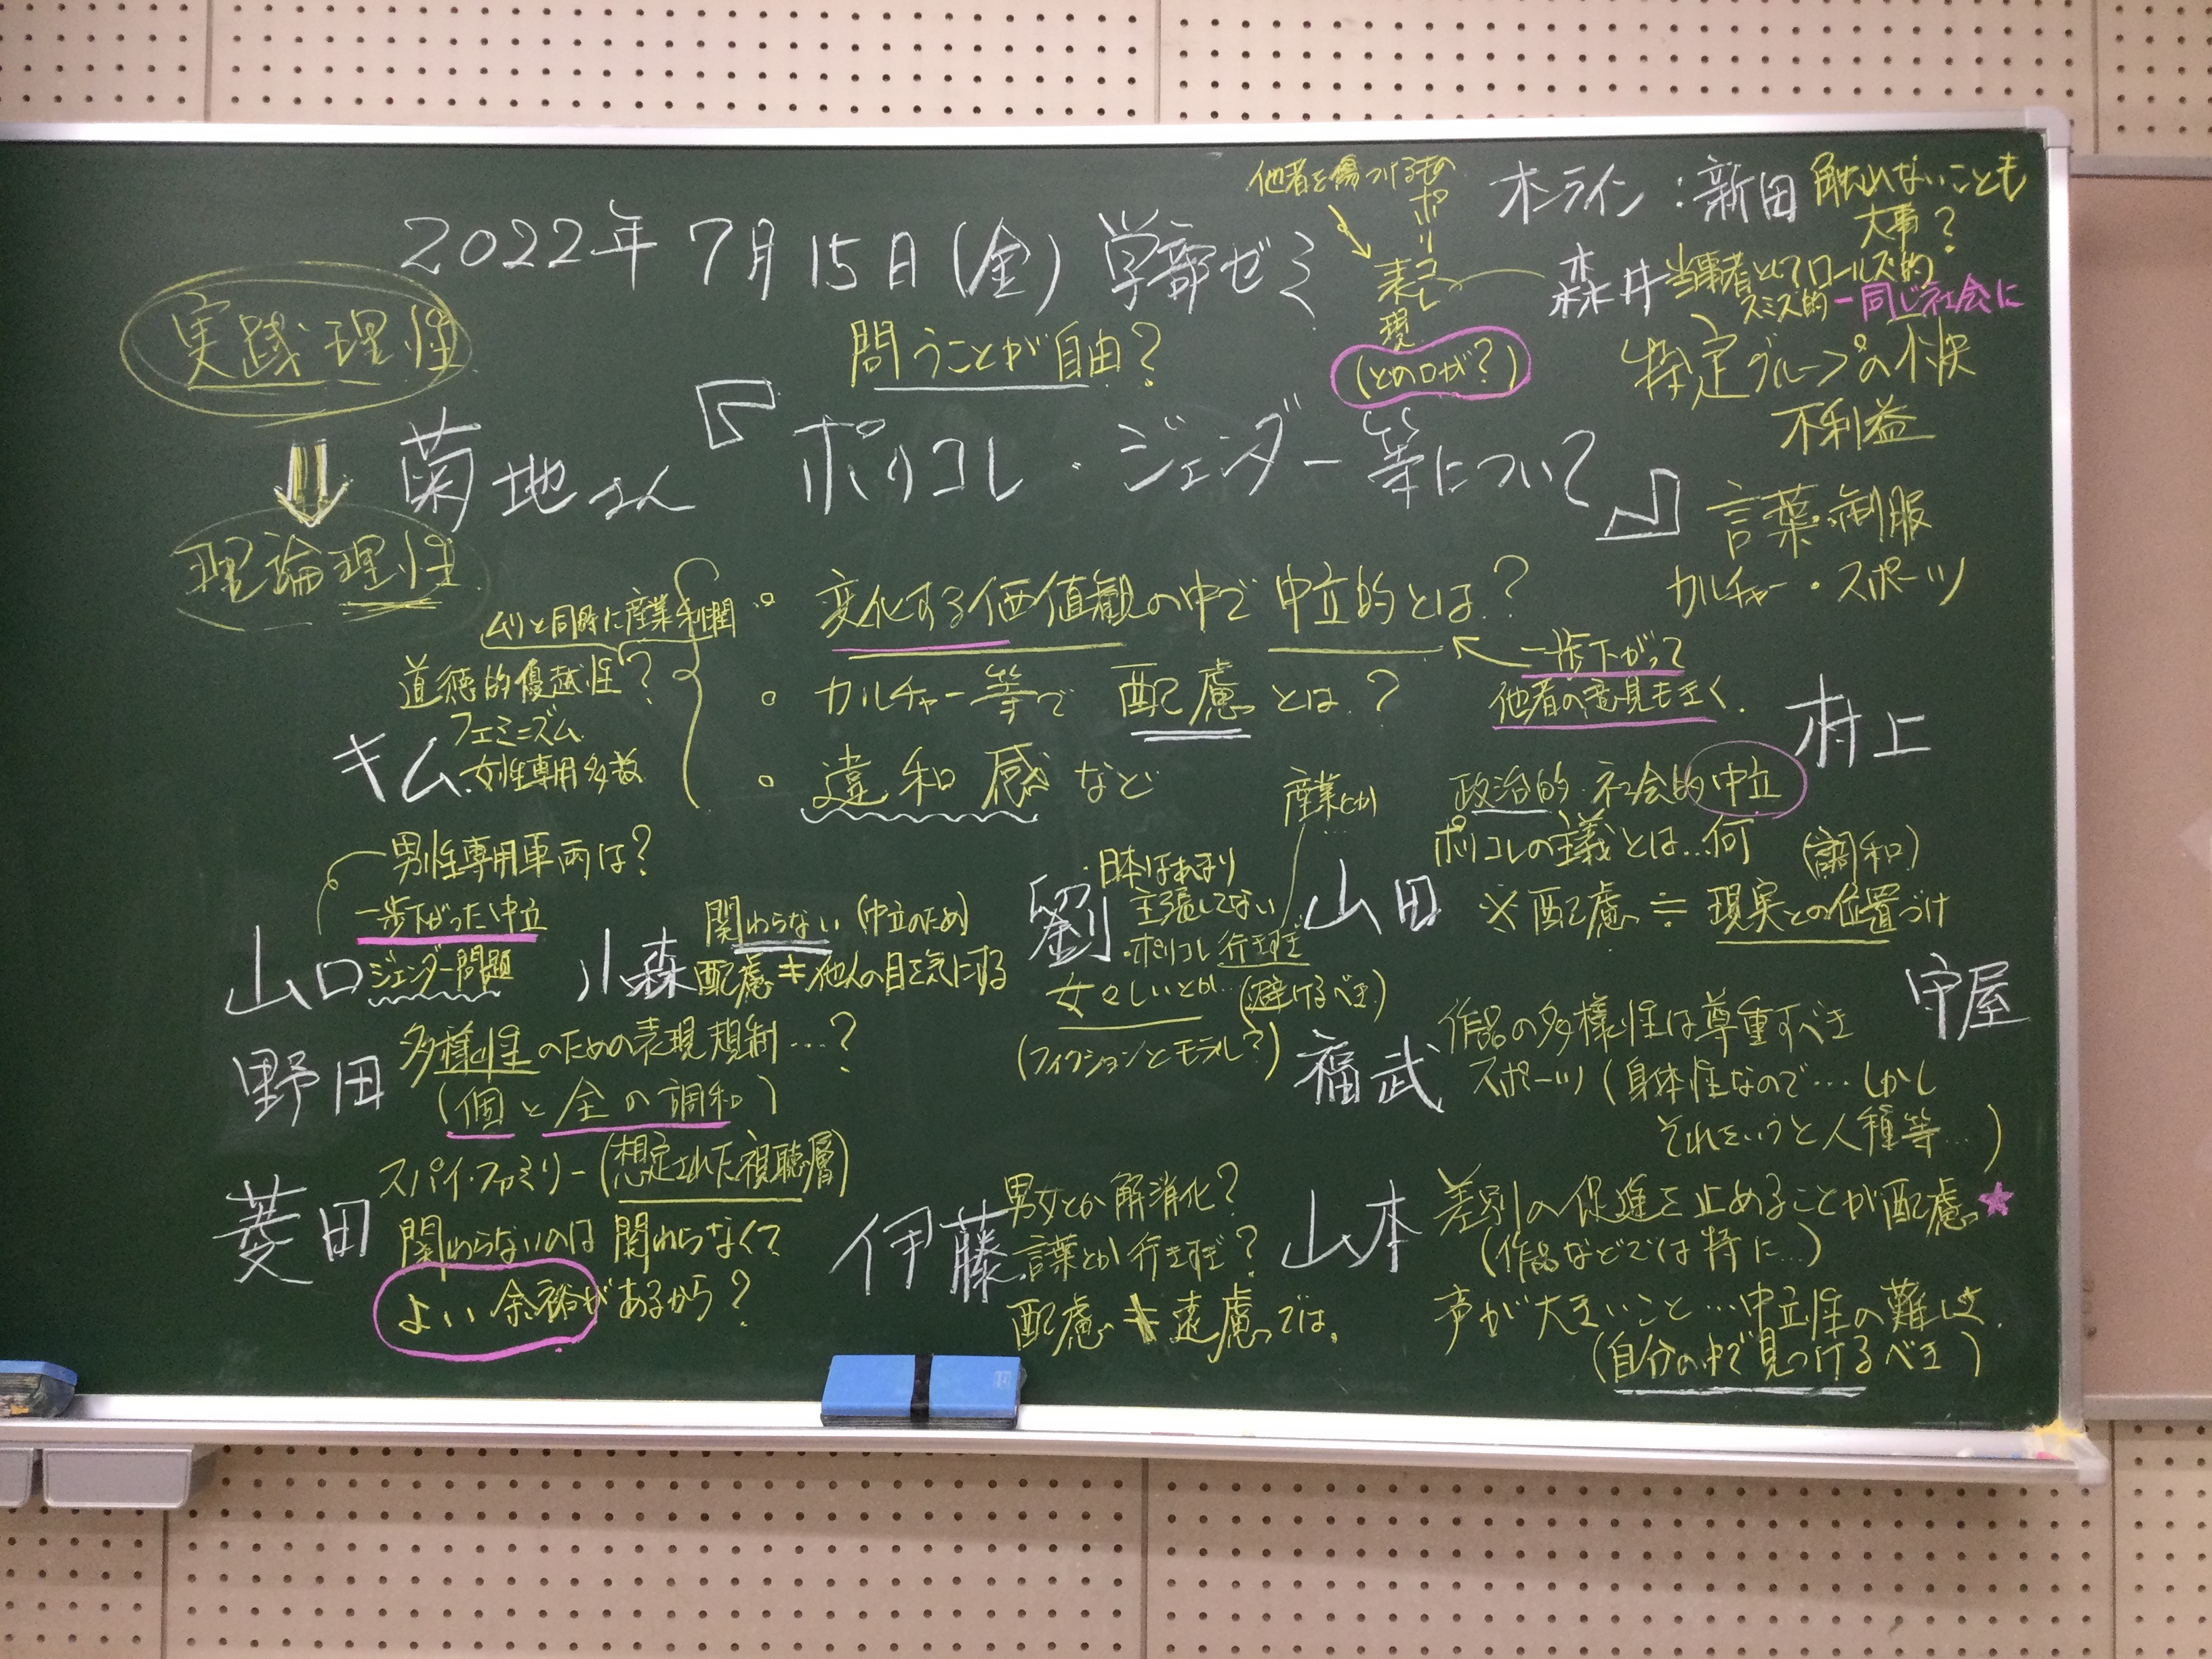 2022年7月15日(金) 学部ゼミ
実践理性
理論理性
問うことが自由?
菊地さん『ポリコレ・ジェンダー等について』
他者を傷つけるもの
ポリコレ
表現
(どの口が?)
オンライン:新田 触れないことも
大事?
森井 当事者としてロールズ的
スミス的 一同じ社会に
特定グループの不快
不利益
言葉・制服
カルチャー・スポーツ
。変化する価値観の中で中立的とは?
。カルチャー等で配慮とは?
。違和感など
ムリと同時に産業利潤
道徳的優越性?
フェミニズム
キム 女性専用多数
一歩下がって
他者の意見もきく.
村上
政治的・社会的中立
産業とか
男性専用車両は?
山口 一歩下がった中立
ジェンダー問題
小森 関わらない(中立のため)
配慮≠他人の目を気にする
劉 ・日本はあまり
主張してない
・ポリコレ行きすぎ
女々しいとか…(避けるべき)
(フィクションとモラル?)
山田 ポリコレの主義とは…何
(調和)
※配慮≒現実との位置づけ
守屋
野田 多様性のための表現規制…?
(個と全の調和)
福武 作品の多様性は尊重すべき
スポーツ(身体性なので…しかし
それをいうと人種等…)
菱田 スパイ・ファミリー(想定された視聴層)
関わらないのは関わらなくて
よい余裕があるから?
伊藤 男女とか解消化?
言葉とか行きすぎ?
配慮≠遠慮では.
山本 差別の促進を止めることが配慮★
(作品などでは特に…)
声が大きいこと…中立性の難しさ.
(自分の中で見つけるべき)